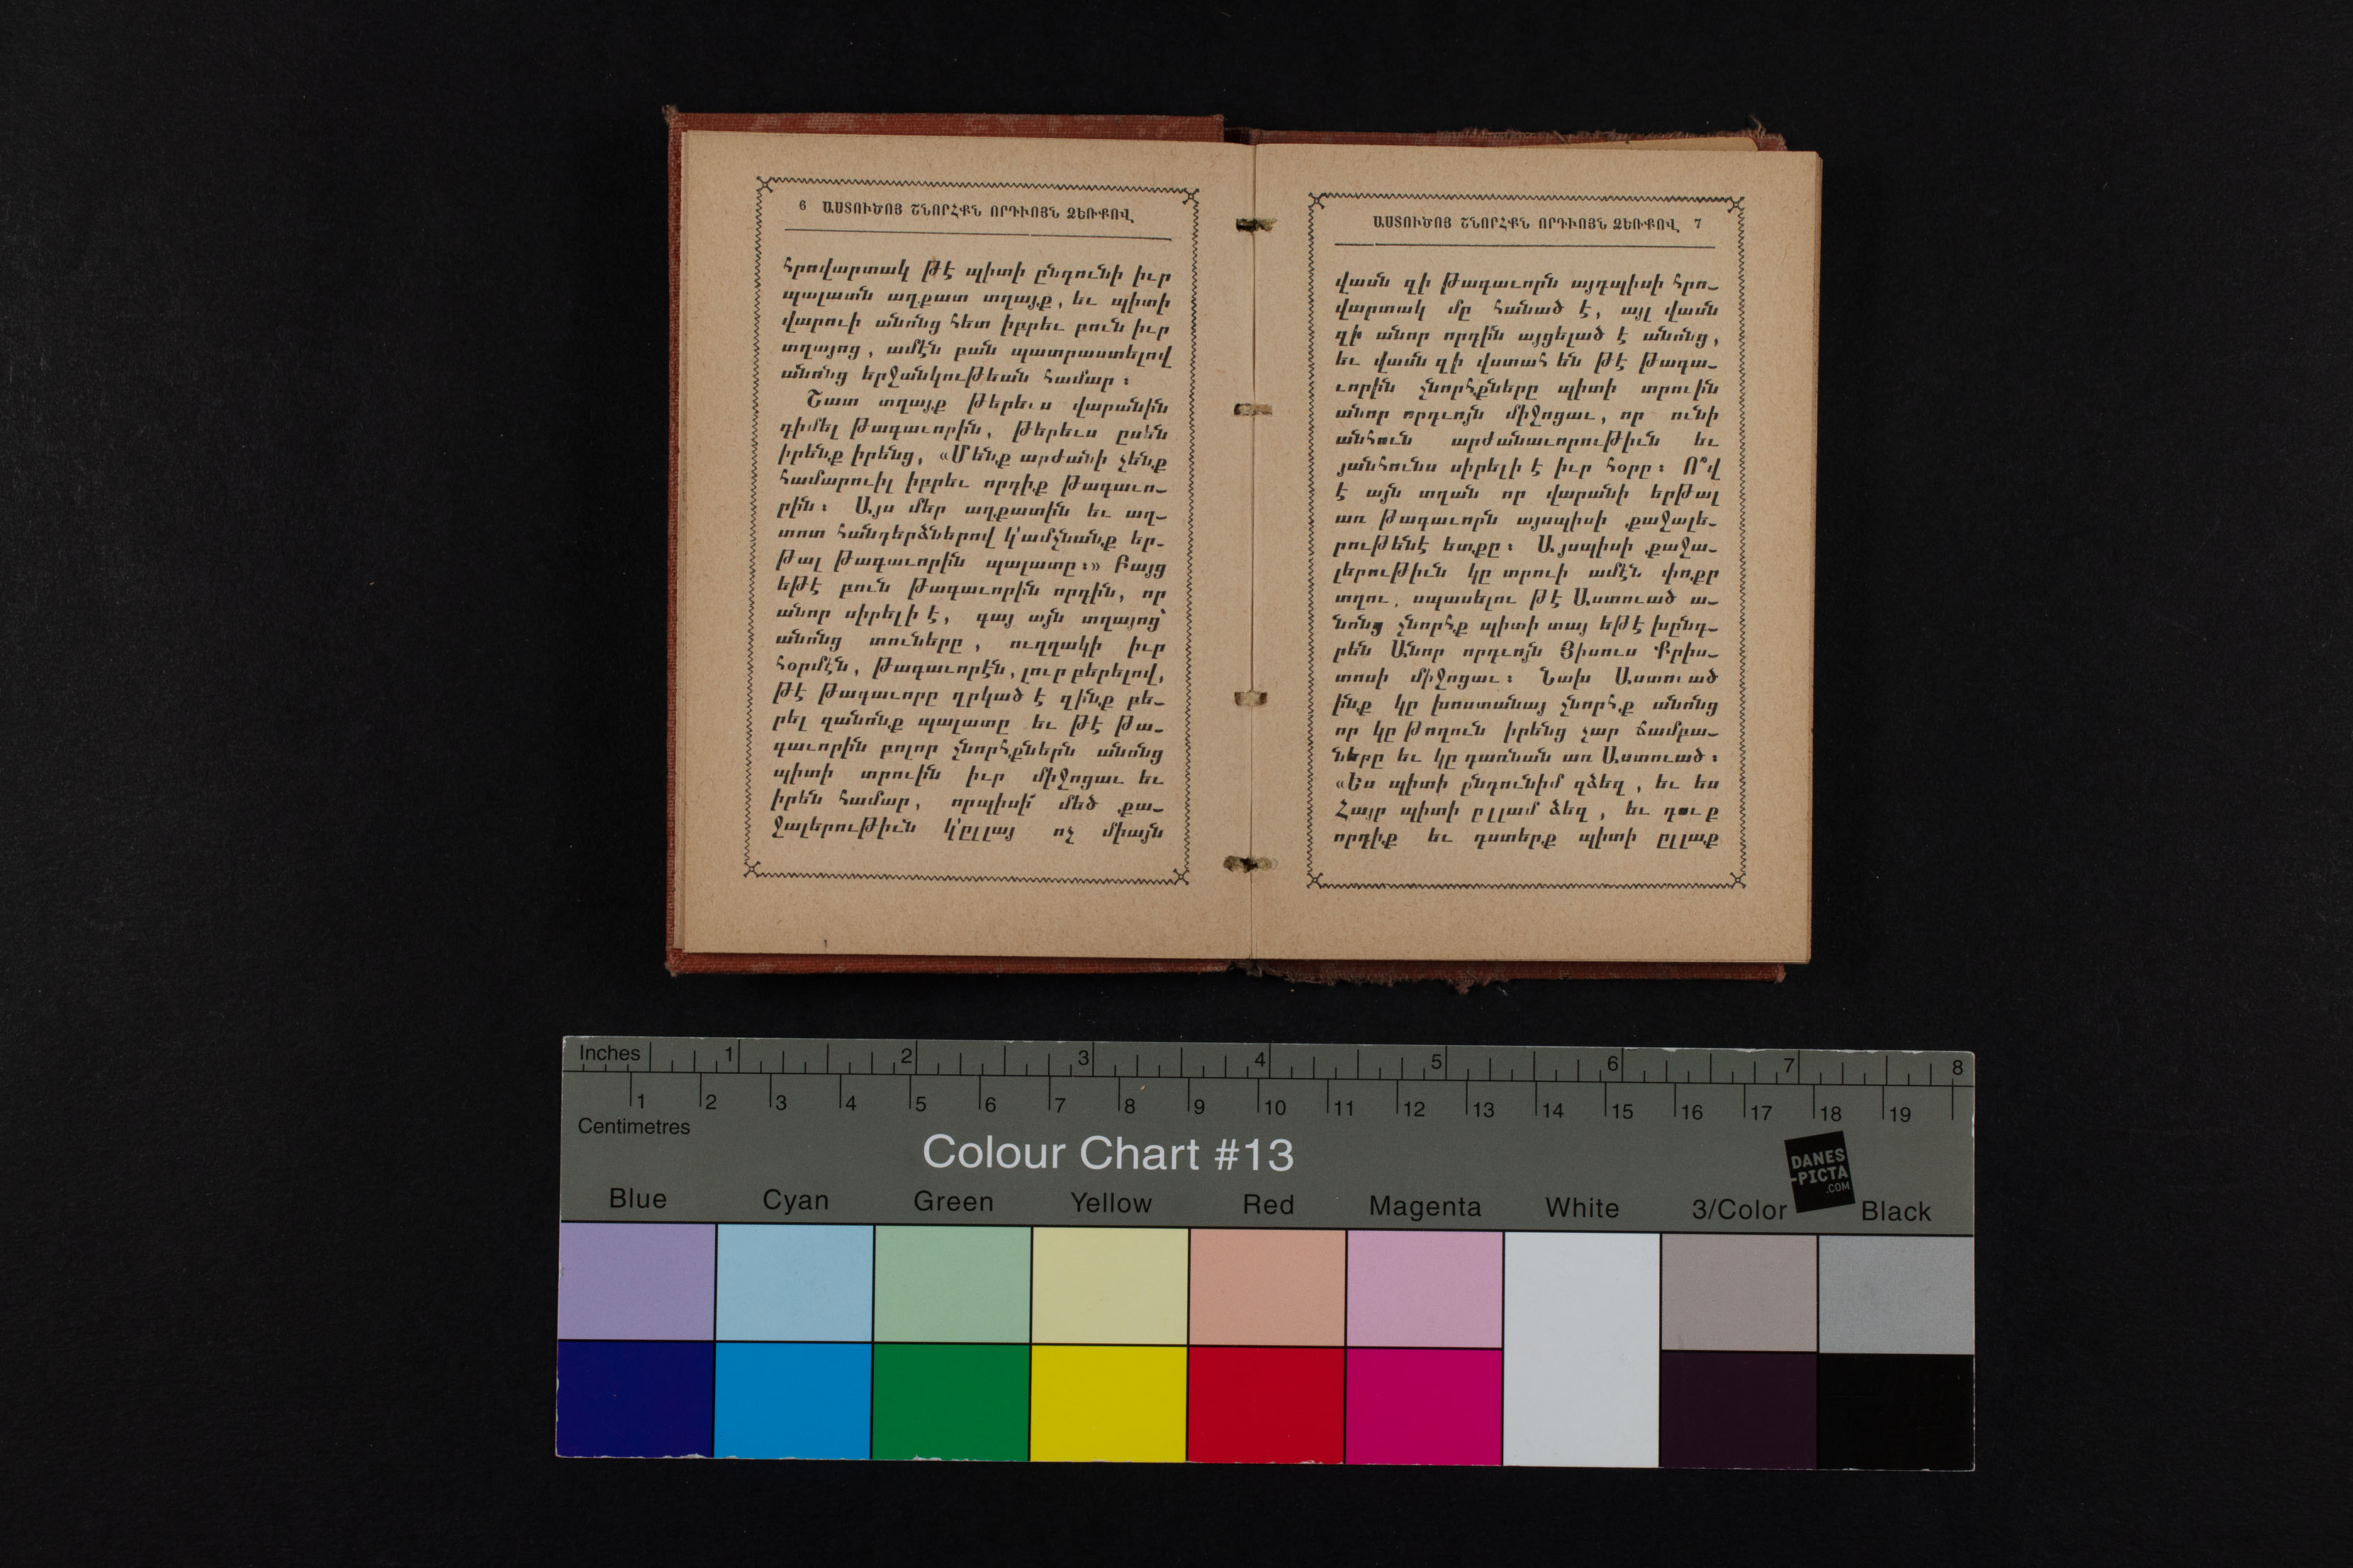 6 ԱՍՏՈՒԾՈՅ ՇՆՈՐՀՔՆ ՈՐԴՒՈՅՆ ՁԵՌՔՈՎ
հրովարտակ թէ պիտի ընդունի իւր
պալատն աղքատ տղայք, եւ պիտի
վարուի անոնց հետ իբրեւ բուն իւր
տղայոց, ամէն բան պատրաստելով
անոնց երջանկութեան համար։
Շատ տղայք թերեւս վարանին
դիմել թագաւորին, թերեւս ըսեն
իրենք իրենց, «Մենք արժանի չենք
համարուիլ իբրեւ որդիք թագաւո-
րին։ Այս մեր աղքատին եւ աղ-
տոտ հանդերձներով կ՚ամչնանք եր-
թալ թագաւորին պալատը։» Բայց
եթէ բուն թագաւորին որդին, որ
անոր սիրելի է, գայ այն տղայոց՝
անոնց տուները, ուղղակի իւր
հօրմէն, թագաւորէն, լուր բերելով,
թէ թագաւորը ղրկած է զինք բե-
րել զանոնք պալատը եւ թէ թա-
գաւորին բոլոր շնորհքներն անոնց
պիտի տրուին իւր միջոցաւ եւ
իրեն համար, որպիսի՜ մեծ քա-
ջալերութիւն կ՚ըլլայ ոչ միայն
ԱՍՏՈՒԾՈՅ ՇՆՈՐՀՔՆ ՈՐԴՒՈՅՆ ՁԵՌՔՈՎ 7
վասն զի թագաւորն այդպիսի հրո-
վարտակ մը հանած է, այլ վասն
զի անոր որդին այցելած է անոնց,
եւ վասն զի վստահ են թէ թագա-
ւորին շնորհքները պիտի տրուին
անոր որդւոյն միջոցաւ, որ ունի
անհուն արժանաւորութիւն եւ
յանհունս սիրելի է իւր հօրը։ Ո՞վ
է այն տղան որ վարանի երթալ
առ թագաւորն այսպիսի քաջալե-
րութենէ ետքը։ Այսպիսի քաջա-
լերութիւն կը տրուի ամէն փոքր
տղու, սպասելու թէ Աստուած ա-
նոնց շնորհք պիտի տայ եթէ խընդ-
րեն Անոր որդւոյն Յիսուս Քրիս-
տոսի միջոցաւ։ Նախ Աստուած
ինք կը խոստանայ շնորհք անոնց
որ կը թողուն իրենց չար ճամբա-
ները եւ կը դառնան առ Աստուած։
«Ես պիտի ընդունիմ զձեզ, եւ ես
Հայր պիտի ըլլամ ձեզ, եւ դուք
որդիք եւ դստերք պիտի ըլլաք
Inches 1 2 3 4 5 6 7 8
1 2 3 4 5 6 7 8 9 10 11 12 13 14 15 16 17 18 19
Centimetres
Colour Chart #13
DANES
-PICTA
.COM
Blue Cyan Green Yellow Red Magenta White 3/Color Black